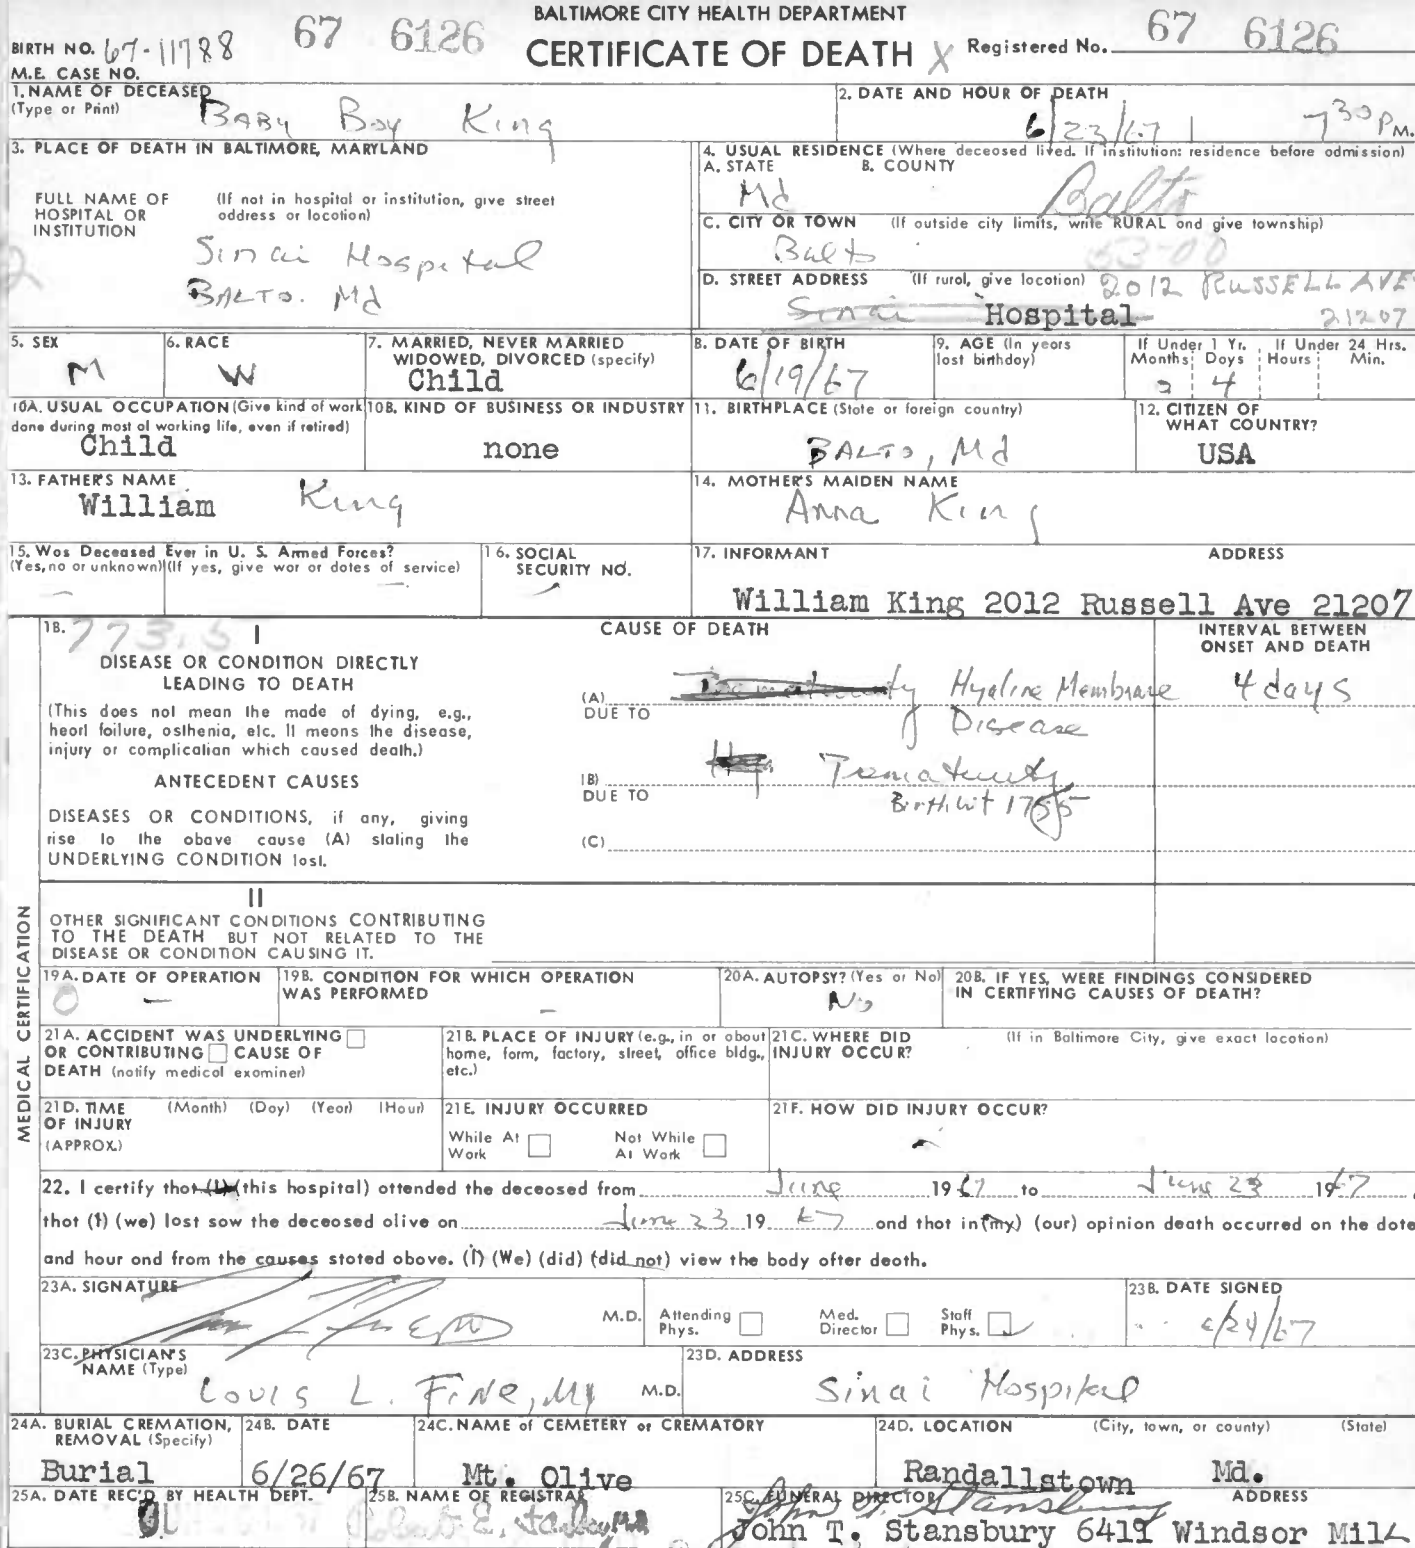 BALTIMORE CITY HEALTH DEPARTMENT
BIRTH NO. 67-11788 67 6126 CERTIFICATE OF DEATH X Registered No. 67 6126
M.E. CASE NO.
1. NAME OF DECEASED
(Type or Print) BABY Boy King
2. DATE AND HOUR OF DEATH
6/23/67 7 30 P M.
3. PLACE OF DEATH IN BALTIMORE, MARYLAND
FULL NAME OF HOSPITAL OR INSTITUTION
(If not in hospital or institution, give street address or location)
Sinai Hospital
BALTO. Md
4. USUAL RESIDENCE (Where deceased lived. If institution: residence before admission)
A. STATE B. COUNTY
Md Balto
C. CITY OR TOWN (If outside city limits, write RURAL and give township)
Balto 53-00
D. STREET ADDRESS (If rural, give location) 2012 RUSSELL AVE
Sinai Hospital 21207
5. SEX
M
6. RACE
W
7. MARRIED, NEVER MARRIED
WIDOWED, DIVORCED (specify)
Child
8. DATE OF BIRTH
6/19/67
9. AGE (In years
last birthday)
If Under 1 Yr. If Under 24 Hrs.
Months Days Hours Min.
4
10A. USUAL OCCUPATION (Give kind of work
done during most of working life, even if retired)
Child
10B. KIND OF BUSINESS OR INDUSTRY
none
11. BIRTHPLACE (State or foreign country)
BALTO, Md
12. CITIZEN OF
WHAT COUNTRY?
USA
13. FATHER'S NAME
William King
14. MOTHER'S MAIDEN NAME
Anna King
15. Was Deceased Ever in U. S. Armed Forces?
(Yes, no or unknown) (If yes, give war or dates of service)
16. SOCIAL
SECURITY NO.
17. INFORMANT ADDRESS
William King 2012 Russell Ave 21207
18. 773.5
I
DISEASE OR CONDITION DIRECTLY
LEADING TO DEATH
(This does not mean the mode of dying, e.g.,
heart failure, asthenia, etc. It means the disease,
injury or complication which caused death.)
ANTECEDENT CAUSES
DISEASES OR CONDITIONS, if any, giving
rise to the above cause (A) stating the
UNDERLYING CONDITION last.
CAUSE OF DEATH
INTERVAL BETWEEN
ONSET AND DEATH
(A) Hyaline Membrane 4 days
DUE TO Disease
(B) Prematurity
DUE TO Birth wt
(C)
II
OTHER SIGNIFICANT CONDITIONS CONTRIBUTING
TO THE DEATH BUT NOT RELATED TO THE
DISEASE OR CONDITION CAUSING IT.
MEDICAL CERTIFICATION
19A. DATE OF OPERATION
0 –
19B. CONDITION FOR WHICH OPERATION
WAS PERFORMED
–
20A. AUTOPSY? (Yes or No)
No
20B. IF YES, WERE FINDINGS CONSIDERED
IN CERTIFYING CAUSES OF DEATH?
21A. ACCIDENT WAS UNDERLYING
OR CONTRIBUTING CAUSE OF
DEATH (notify medical examiner)
21B. PLACE OF INJURY (e.g., in or about
home, farm, factory, street, office bldg.,
etc.)
21C. WHERE DID (If in Baltimore City, give exact location)
INJURY OCCUR?
21D. TIME (Month) (Day) (Year) (Hour)
OF INJURY
(APPROX.)
21E. INJURY OCCURRED
While At Work Not While At Work
21F. HOW DID INJURY OCCUR?
22. I certify that (I) (this hospital) attended the deceased from June 1967 to June 23 1967,
that (I) (we) last saw the deceased alive on June 23 19 67 and that in (my) (our) opinion death occurred on the date
and hour and from the causes stated above. (I) (We) (did) (did not) view the body after death.
23A. SIGNATURE
M.D. Attending Phys. Med. Director Staff Phys.
23B. DATE SIGNED
6/24/67
23C. PHYSICIAN'S
NAME (Type) Louis L. Fine, MD M.D.
23D. ADDRESS
Sinai Hospital
24A. BURIAL CREMATION,
REMOVAL (Specify)
Burial
24B. DATE
6/26/67
24C. NAME of CEMETERY or CREMATORY
Mt. Olive
24D. LOCATION (City, town, or county) (State)
Randallstown Md.
25A. DATE REC'D BY HEALTH DEPT.
25B. NAME OF REGISTRAR
Robert E.
25C. FUNERAL DIRECTOR ADDRESS
John T. Stansbury
John T. Stansbury 6411 Windsor Mill